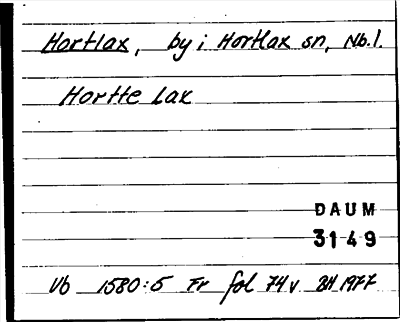 Hortlax, by i Hortlax sn, Nb.l.
Hortte Lax
DAUM
3149
Vb 1580:5 Fr fol 74v BH 1977